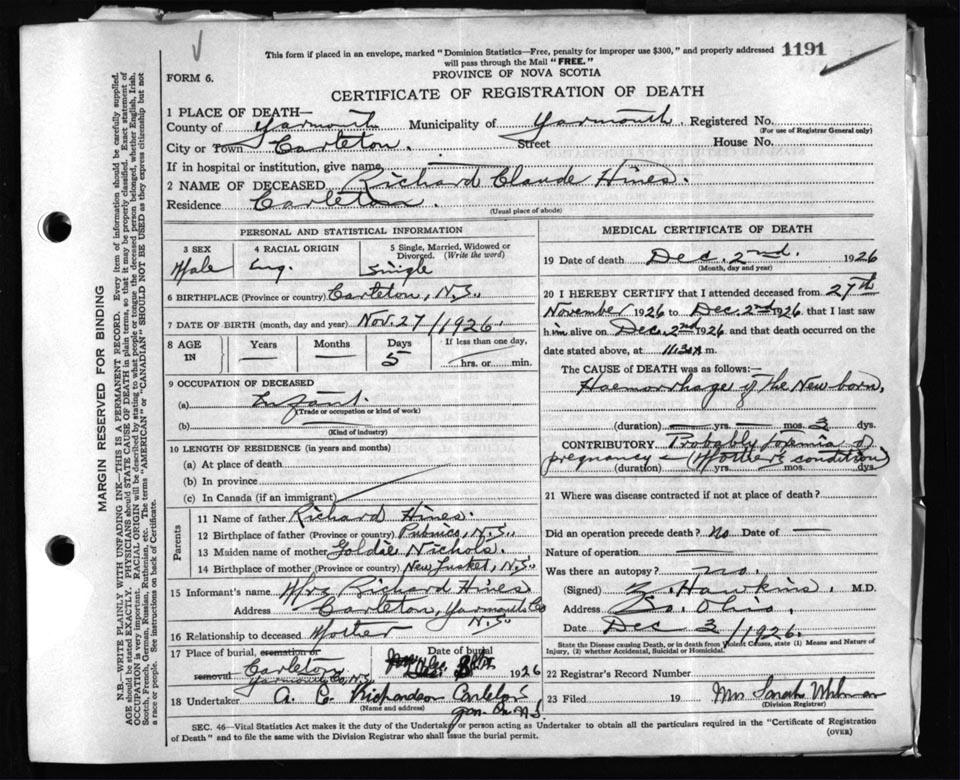 This form if placed in an envelope, marked "Dominion Statistics—Free, penalty for improper use $300," and properly addressed
will pass through the Mail "FREE."
1191
FORM 6.
PROVINCE OF NOVA SCOTIA
CERTIFICATE OF REGISTRATION OF DEATH
MARGIN RESERVED FOR BINDING
N.B.—WRITE PLAINLY WITH UNFADING INK—THIS IS A PERMANENT RECORD. Every item of information should be carefully supplied.
AGE should be stated EXACTLY. PHYSICIANS should STATE CAUSE OF DEATH in plain terms, so that it may be properly classified. Exact statement of
OCCUPATION is very important. RACIAL ORIGIN will be described by stating to what people or tongue the deceased person belonged, whether English, Irish,
Scotch, French, German, Russian, Ruthenian, etc. The terms "AMERICAN" or "CANADIAN" SHOULD NOT BE USED as they express citizenship but not
a race or people. See instructions on back of Certificate.
1 PLACE OF DEATH—
County of Yarmouth Municipality of Yarmouth Registered No.
(For use of Registrar General only)
City or Town Carleton. Street House No.
If in hospital or institution, give name
2 NAME OF DECEASED Richard Claude Hines.
Residence Carleton.
(Usual place of abode)
PERSONAL AND STATISTICAL INFORMATION
3 SEX 4 RACIAL ORIGIN 5 Single, Married, Widowed or
Divorced. (Write the word)
Male Eng. Single
6 BIRTHPLACE (Province or country) Carleton, N.S.
7 DATE OF BIRTH (month, day and year) Nov. 27/1926.
8 AGE IN Years Months Days If less than one day,
5 hrs. or min.
9 OCCUPATION OF DECEASED
(a) Infant.
(Trade or occupation or kind of work)
(b)
(Kind of industry)
10 LENGTH OF RESIDENCE (in years and months)
(a) At place of death
(b) In province
(c) In Canada (if an immigrant)
Parents
11 Name of father Richard Hines.
12 Birthplace of father (Province or country) Pubnico, N.S.
13 Maiden name of mother Goldie Nichols.
14 Birthplace of mother (Province or country) New Tusket, N.S.
15 Informant's name Mrs Richard Hines
Address Carleton, Yarmouth Co
N.S.
16 Relationship to deceased Mother
17 Place of burial, cremation or removal Date of burial
Carleton
Yarmouth Co, N.S. Dec. 1926
18 Undertaker A. C. Richardson Carleton
(Name and address)
N.S.
MEDICAL CERTIFICATE OF DEATH
19 Date of death Dec. 2nd. 1926
(Month, day and year)
20 I HEREBY CERTIFY that I attended deceased from 27th
November 1926 to Dec. 2nd 1926, that I last saw
him alive on Dec. 2nd 1926 and that death occurred on the
date stated above, at 11.30 A m.
The CAUSE OF DEATH was as follows:—
Haemorrhage of the New born,
(duration) yrs. mos. 3 dys.
CONTRIBUTORY Probably Toxemia of
pregnancy – (Mother's condition)
(duration) yrs. mos. dys.
21 Where was disease contracted if not at place of death?
Did an operation precede death? No Date of
Nature of operation
Was there an autopsy? no.
(Signed) Hawkins M.D.
Address So. Ohio.
Date Dec 3/1926.
State the Disease causing Death, or in death from Violent Causes, state (1) Means and Nature of
Injury, (2) whether Accidental, Suicidal or Homicidal.
22 Registrar's Record Number
23 Filed 19 Mrs Sarah
(Division Registrar)
SEC. 46—Vital Statistics Act makes it the duty of the Undertaker or person acting as Undertaker to obtain all the particulars required in the "Certificate of Registration
of Death" and to file the same with the Division Registrar who shall issue the burial permit.
(OVER)